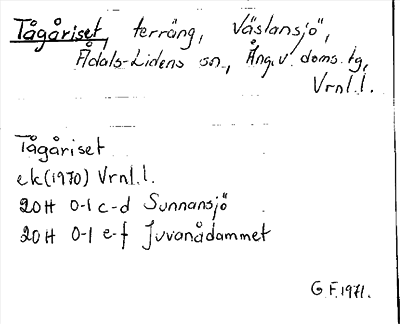 Tågåriset, terräng, Väslansjö,
Ådals-Lidens sn., Ång.v. doms.tg,
Vrnl.l.
Tågåriset
ek(1970) Vrnl.l.
20H 0-1 c-d Sunnansjö
20H 0-1 e-f Juvanådammet
G.F.1971.